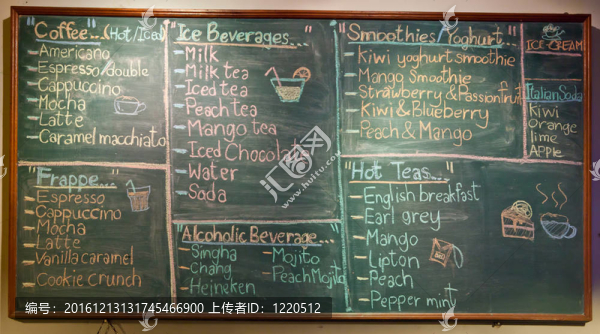 "Coffee...(Hot/Iced)
-Americano
-Espresso/double
-Cappuccino
-Mocha
-Latte
-Caramel macchiato
"Frappe..."
-Espresso
-Cappuccino
-Mocha
-Latte
-Vanilla caramel
-Cookie crunch
"Ice Beverages..."
-Milk
-Milk tea
-Iced tea
-Peach tea
-Mango tea
-Iced Chocolate
-Water
-Soda
"Alcoholic Beverage..."
-Singha
-Chang
-Heineken
-Mojito
-Peach Mojito
"Smoothies/Yoghurt..."
-Kiwi yoghurt smoothie
-Mango Smoothie
-Strawberry & Passionfruit
-Kiwi & Blueberry
-Peach & Mango
ICE-CREAM
Italian Soda
Kiwi
Orange
lime
Apple
"Hot Teas..."
-English breakfast
-Earl grey
-Mango
-Lipton
-Peach
-Pepper mint
汇图网
www.huitu.com
编号：20161213131745466900 上传者ID：1220512